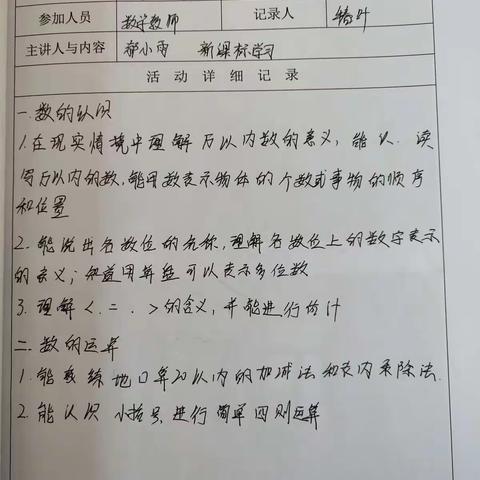 参加人员 数学教师 记录人
主讲人与内容 郗小雨 新课标学习
活动详细记录
一.数的认识
1.在现实情境中理解万以内数的意义，能认、读
写万以内的数，能用数表示物体的个数或事物的顺序
和位置
2.能说出各数位的名称，理解各数位上的数字表示
的意义；知道用算盘可以表示多位数
3.理解<.=.>的含义，并能进行估计
二.数的运算
1.能熟练地口算20以内的加减法和表内乘除法.
2.能认识小括号，进行简单四则运算